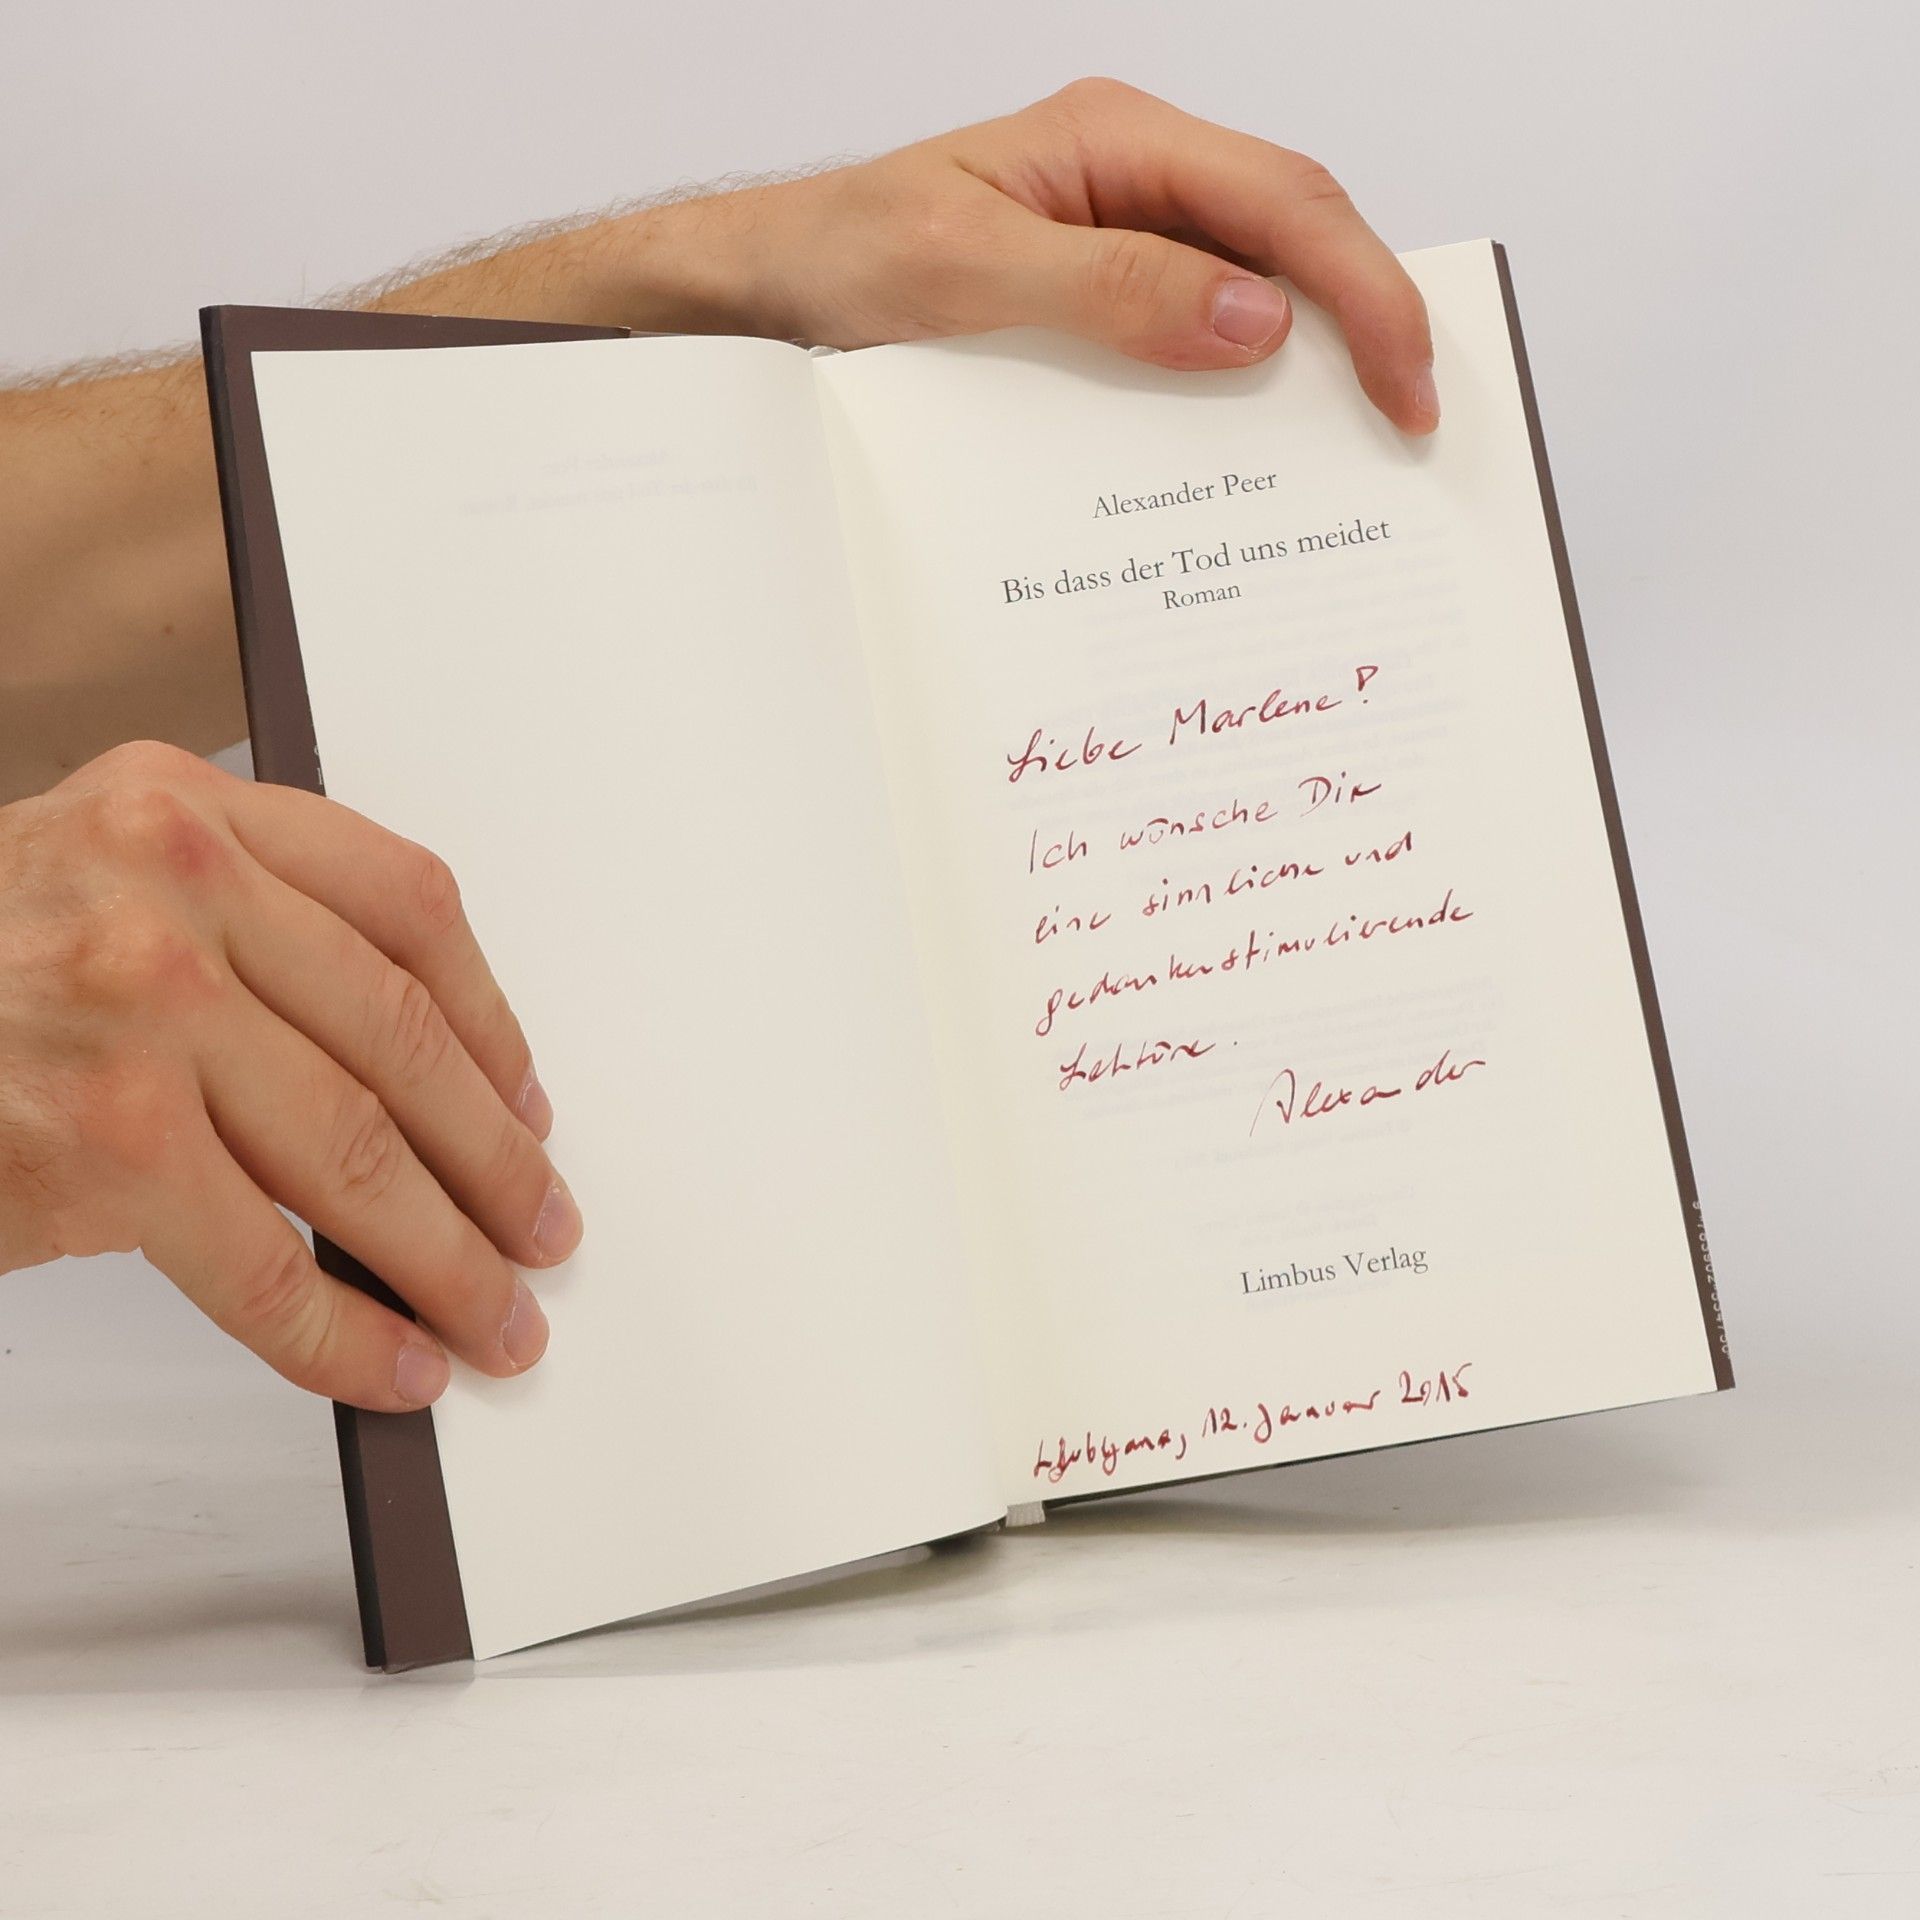 Alexander Peer
Bis dass der Tod uns meidet
Roman
Liebe Marlene!
Ich wünsche Dir
eine sinnliche und
gedankenstimulierende
Lektüre.
Alexander
Limbus Verlag
Ljubljana, 12. Januar 2015